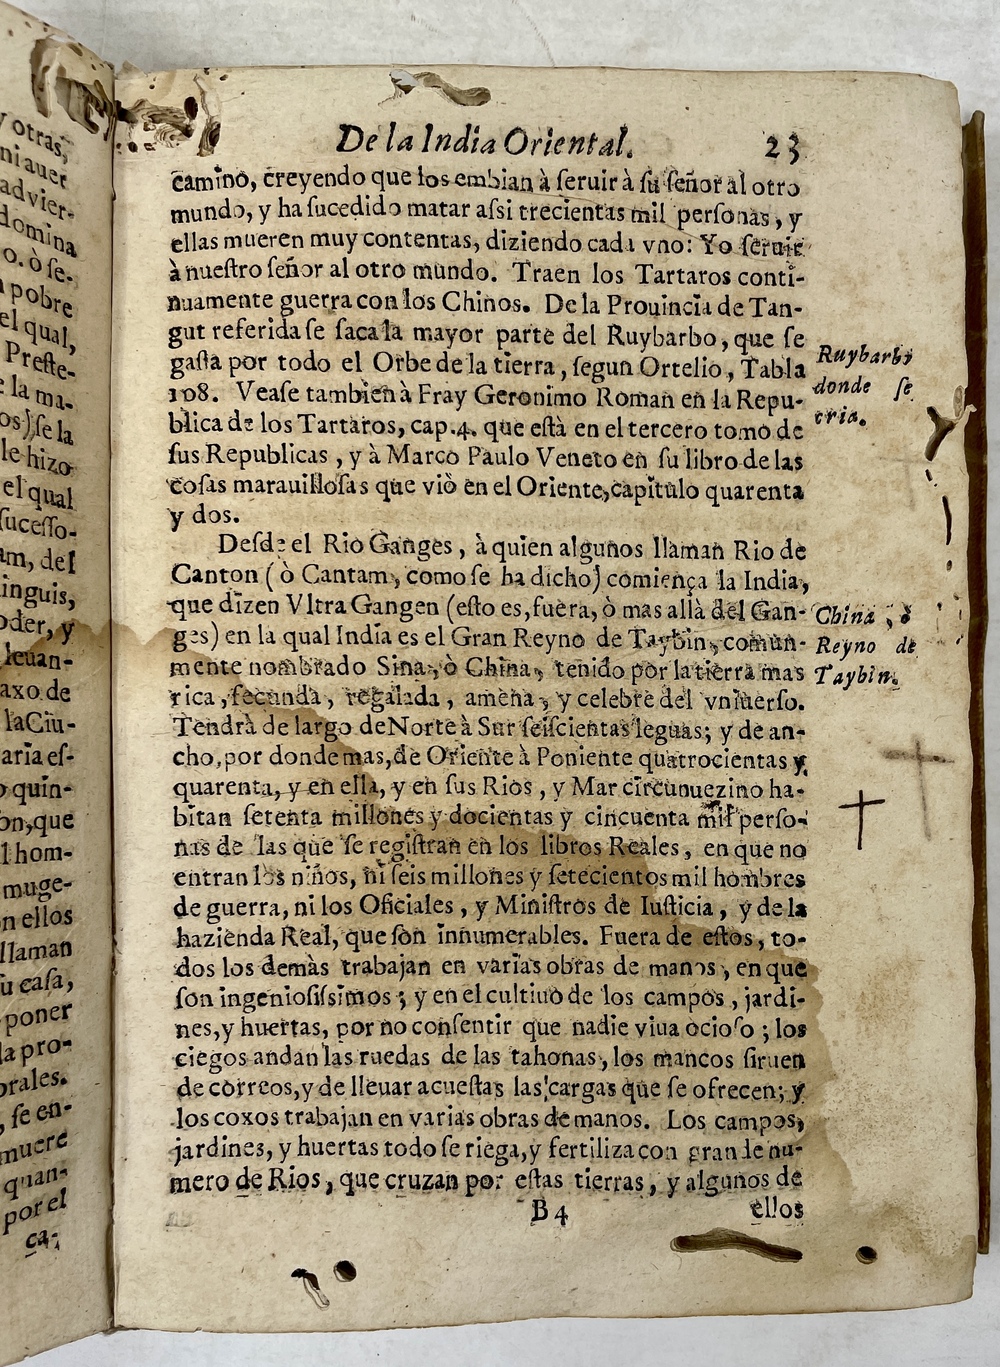 y otras,
ni auer
advier-
domina
o. ò se-
pobre
el qual,
Preste-
e la ma-
os) se la
le hizo
el qual
sucesso-
am, del
inguis,
oder, y
leuan-
axo de
la Ciu-
aria es-
o quin-
on, que
l hom-
muge-
n ellos
llaman
u casa,
poner
la pro-
orales.
, se en-
muere
quan-
por el
ca-
De la India Oriental. 23
camino, creyendo que los embian à seruir à su señor al otro
mundo, y ha sucedido matar assi trecientas mil personas, y
ellas mueren muy contentas, diziendo cada vno: Yo seruir
à nuestro señor al otro mundo. Traen los Tartaros conti-
nuamente guerra con los Chinos. De la Prouincia de Tan-
gut referida se saca la mayor parte del Ruybarbo, que se
gasta por todo el Orbe de la tierra, segun Ortelio, Tabla
108. Vease tambien à Fray Geronimo Roman en la Repu-
blica de los Tartaros, cap. 4. que està en el tercero tomo de
sus Republicas, y à Marco Paulo Veneto en su libro de las
cosas marauillosas que viò en el Oriente, capitulo quarenta
y dos.
Ruybarbo
donde se
cria.
Desde el Rio Ganges, à quien algunos llaman Rio de
Canton (ò Cantam, como se ha dicho) comiença la India,
que dizen Vltra Gangen (esto es, fuera, ò mas allà del Gan-
ges) en la qual India es el Gran Reyno de Taybin, comun-
mente nombrado Sina, ò China, tenido por la tierra mas
rica, fecunda, regalada, amena, y celebre del vniuerso.
Tendrà de largo de Norte à Sur seiscientas leguas; y de an-
cho, por donde mas, de Oriente à Poniente quatrocientas y
quarenta, y en ella, y en sus Rios, y Mar circunuezino ha-
bitan setenta millones y docientas y cincuenta mil perso-
nas de las que se registran en los libros Reales, en que no
entran los niños, ni seis millones y setecientos mil hombres
de guerra, ni los Oficiales, y Ministros de Iusticia, y de la
hazienda Real, que son innumerables. Fuera de estos, to-
dos los demàs trabajan en varias obras de manos, en que
son ingeniosissimos; y en el cultiuo de los campos, jardi-
nes, y huertas, por no consentir que nadie viua ocioso; los
ciegos andan las ruedas de las tahonas, los mancos siruen
de correos, y de lleuar acuestas las cargas que se ofrecen; y
los coxos trabajan en varias obras de manos. Los campos,
jardines, y huertas todo se riega, y fertiliza con gran de nu-
mero de Rios, que cruzan por estas tierras, y algunos de
China, ò
Reyno de
Taybin.
B 4 ellos